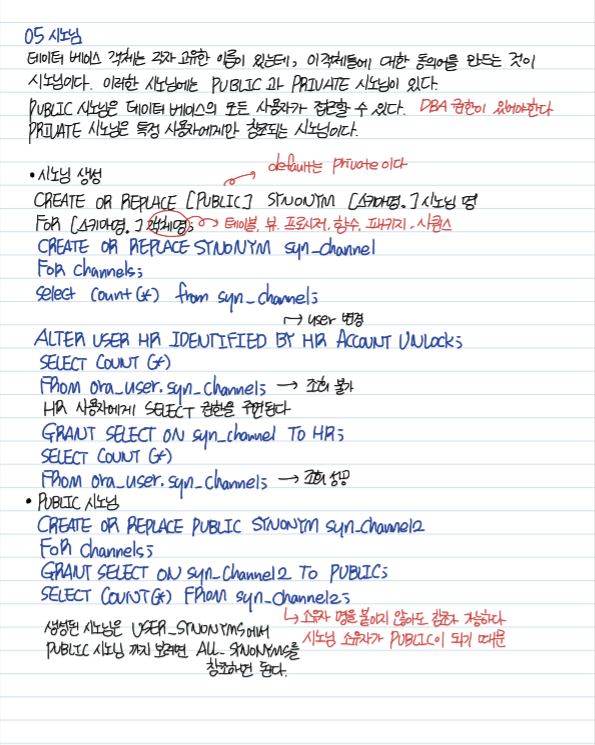 05 시노님
데이터 베이스 객체는 각자 고유한 이름이 있는데, 이 객체들에 대한 동의어를 만드는 것이
시노님이다. 이러한 시노님에는 PUBLIC 과 PRIVATE 시노님이 있다.
PUBLIC 시노님은 데이터 베이스의 모든 사용자가 접근할 수 있다. DBA 권한이 있어야한다
PRIVATE 시노님은 특정 사용자에게만 참조되는 시노님이다.
• 시노님 생성
→ default는 private이다
CREATE OR REPLACE [PUBLIC] SYNONYM [스키마명.] 시노님 명
FOR [스키마명.] 객체명; → 테이블, 뷰, 프로시저, 함수, 패키지, 시퀀스
CREATE OR REPLACE SYNONYM syn_channel
For channels;
select count(*) from syn_channel;
↪ user 변경
ALTER USER HR IDENTIFIED BY HR ACCOUNT UNLOCK;
SELECT COUNT(*)
FROM ora_user.syn_channel; → 조회 불가
HR 사용자에게 SELECT 권한을 주면된다
GRANT SELECT ON syn_channel TO HR;
SELECT COUNT(*)
FROM ora_user.syn_channel; → 조회 성공
• PUBLIC 시노님
CREATE OR REPLACE PUBLIC SYNONYM syn_channel2
FOR channels;
GRANT SELECT ON syn_channel2 TO PUBLIC;
SELECT COUNT(*) FROM syn_channel2;
↳ 소유자 명을 붙이지 않아도 참조가 가능하다
시노님 소유자가 PUBLIC이 되기 때문
생성된 시노님은 USER_SYNONYMS에서
PUBLIC 시노님 까지 보려면 ALL_SYNONYMS를
참조하면 된다.